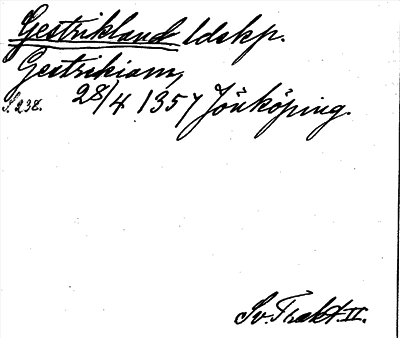 Gestrikland ldskp.
Gestrikiam,
S. 238. 28/4 1357 Jönköping.
Sv. Trakt. II.